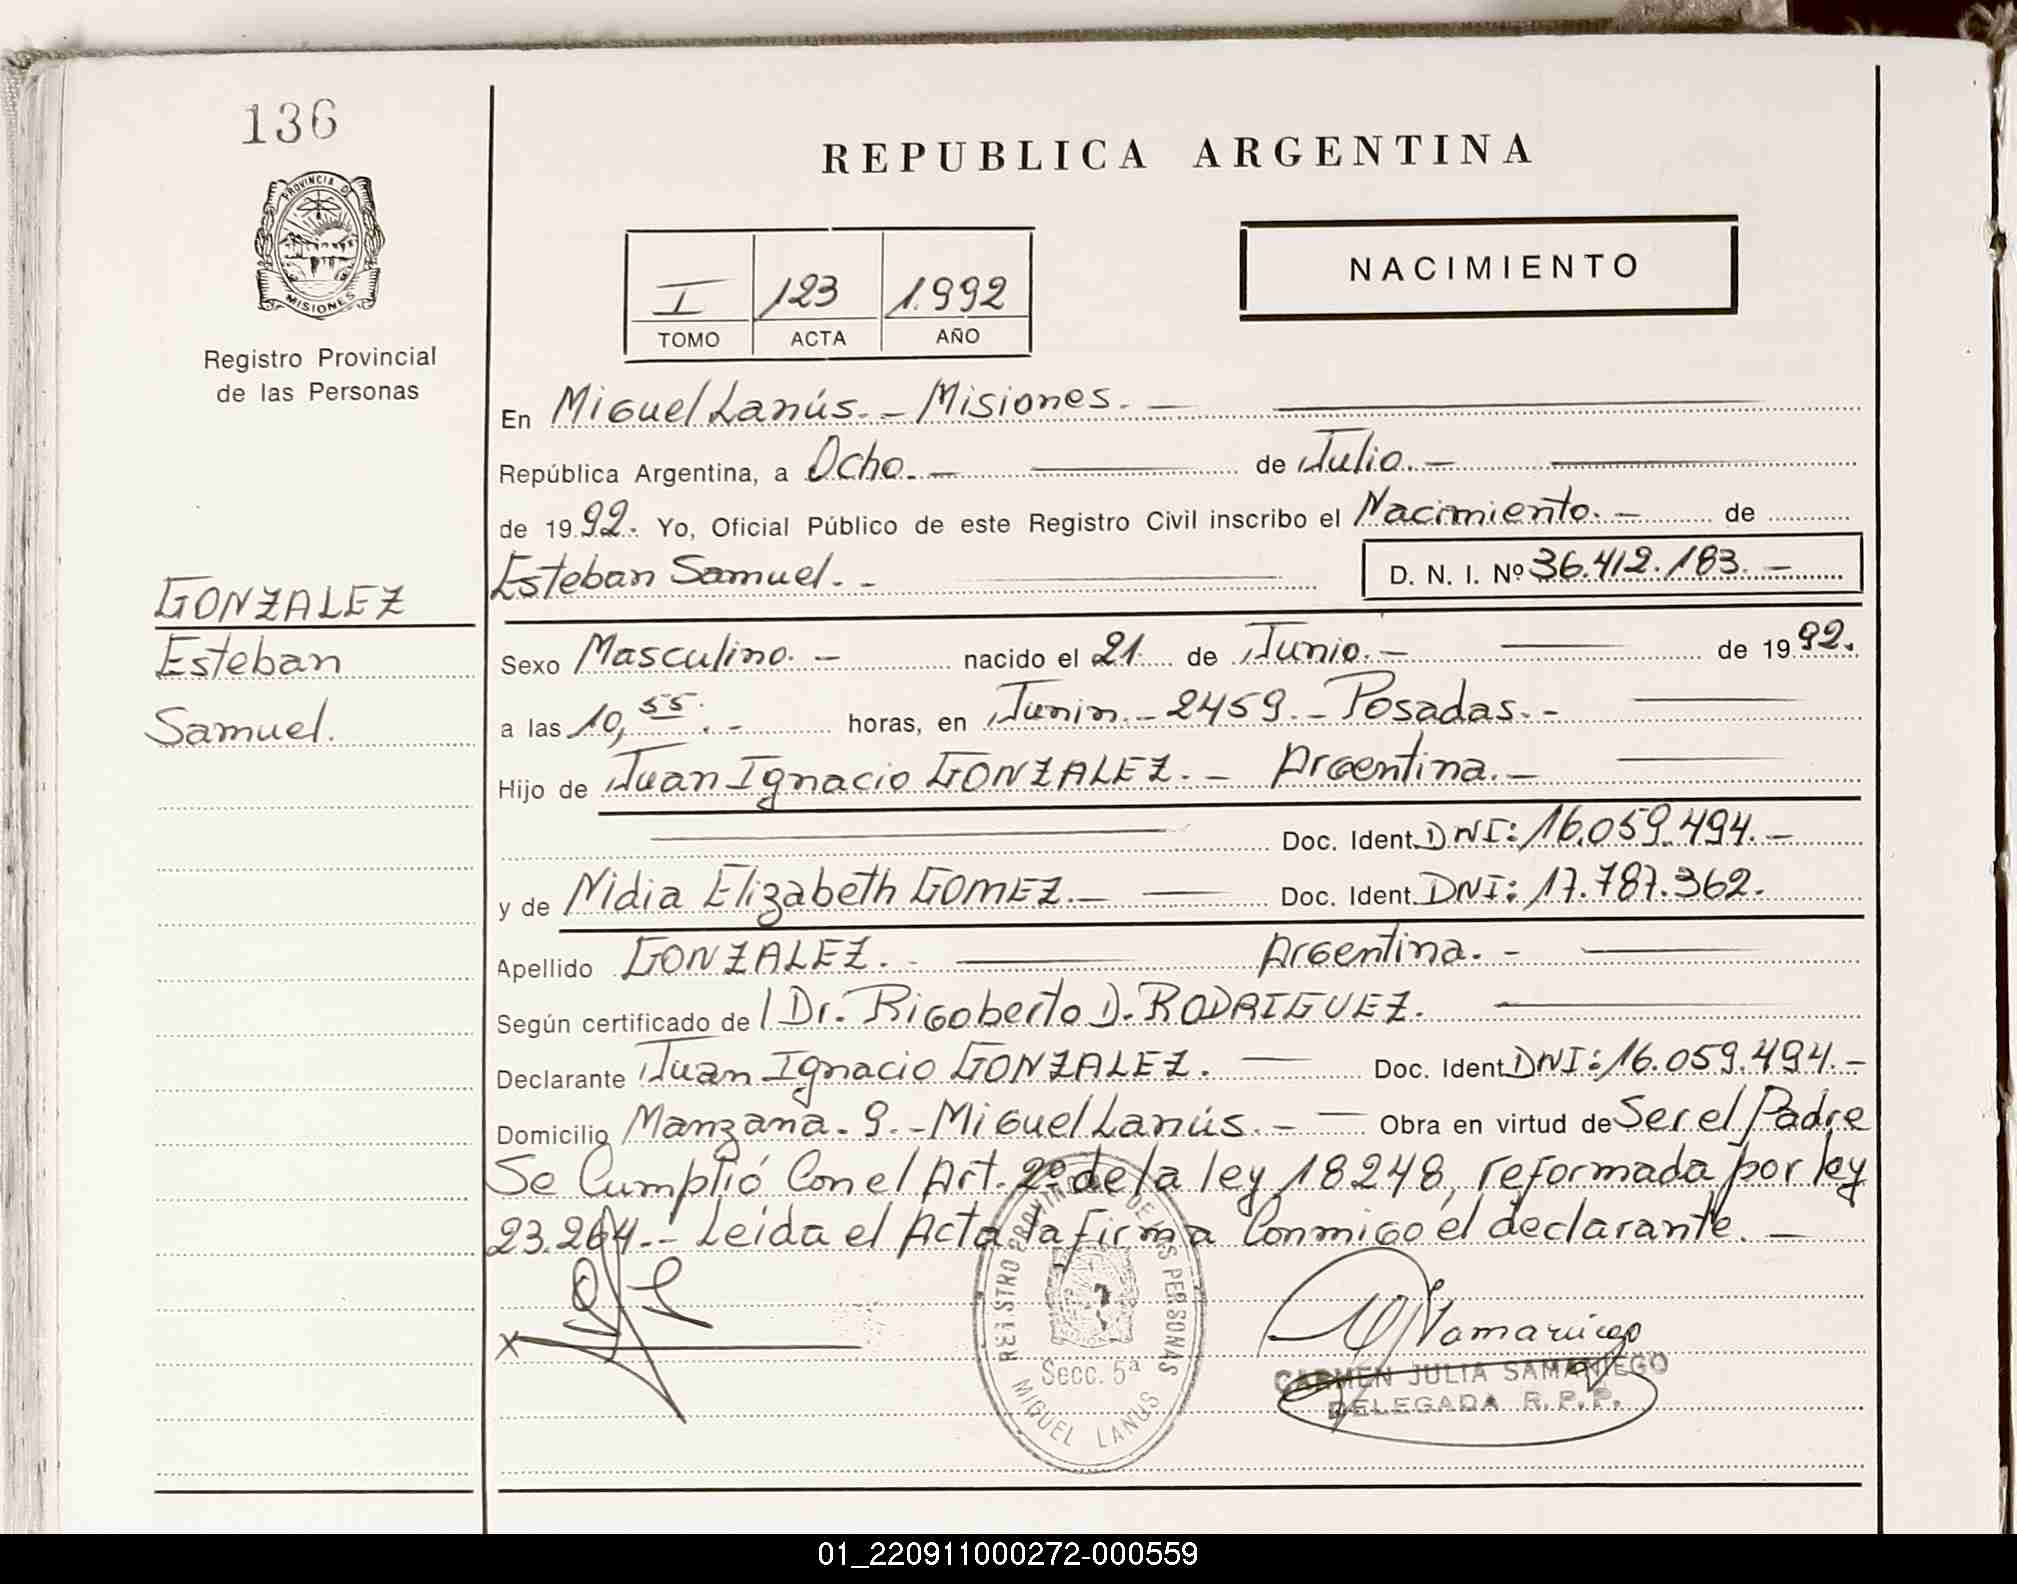 136
REPUBLICA ARGENTINA
PROVINCIA D
MISIONES
Registro Provincial
de las Personas
I 123 1.992
TOMO ACTA AÑO
NACIMIENTO
En Miguel Lanús.- Misiones.-
República Argentina, a Ocho.- de Julio.-
de 1992. Yo, Oficial Público de este Registro Civil inscribo el Nacimiento.- de
Esteban Samuel.- D. N. I. Nº 36.412.183.-
GONZALEZ
Esteban
Samuel.
Sexo Masculino.- nacido el 21 de Junio.- de 1992.
a las 10,55.- horas, en Junin.- 2459.- Posadas.-
Hijo de Juan Ignacio GONZALEZ.- Argentina.-
Doc. Ident. DNI: 16.059.494.-
y de Nidia Elizabeth GOMEZ.- Doc. Ident. DNI: 17.787.362.
Apellido GONZALEZ.- Argentina.-
Según certificado de Dr. Rigoberto D. RODRIGUEZ.
Declarante Juan Ignacio GONZALEZ. Doc. Ident DNI: 16.059.494.-
Domicilio Manzana.9.- Miguel Lanús.- Obra en virtud de Ser el Padre
Se Cumplió Con el Art. 2º de la ley 18248, reformada por ley
23.264.- Leída el Acta la firma Conmigo el declarante.-
X
REGISTRO PROVINCIAL DE LAS PERSONAS
Secc. 5ª
MIGUEL LANUS
CARMEN JULIA SAMANIEGO
DELEGADA R.P.P.
01_220911000272-000559